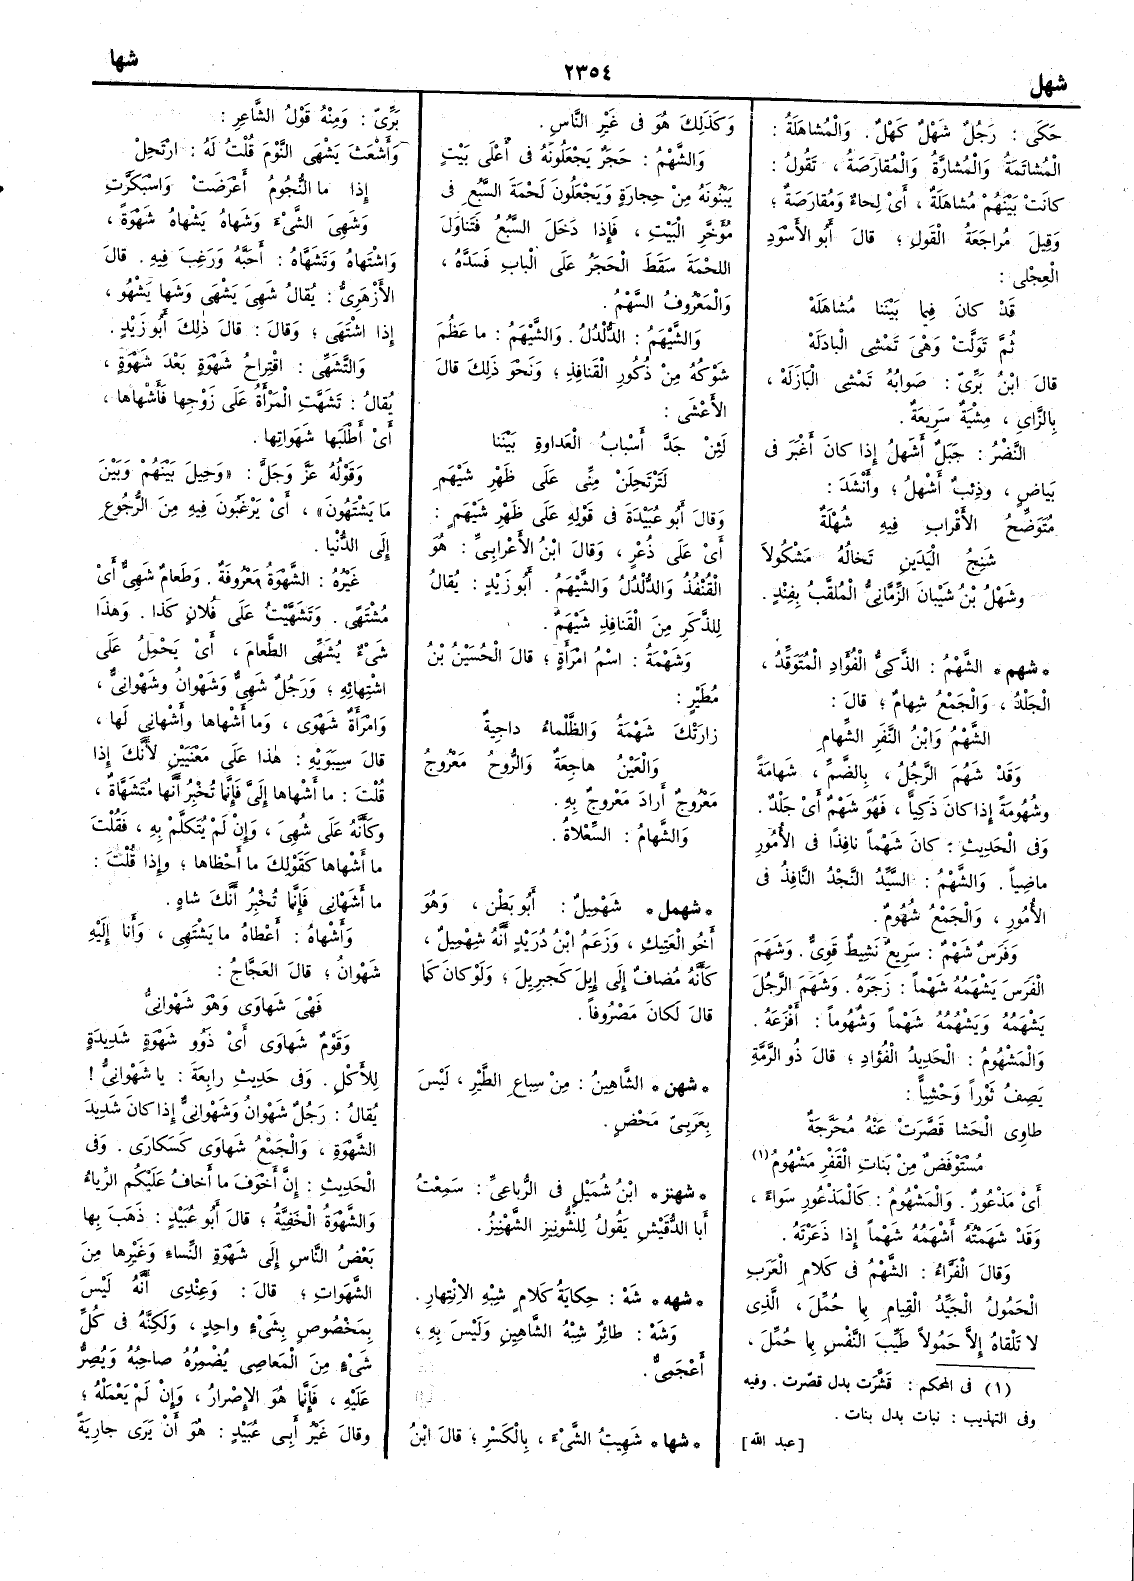 شهل
٢٣٥٤
شها
حَكَى : رَجُلٌ شَهْلٌ كَهْلٌ . وَالْمُشاهَلَةُ :
الْمُشاتَمَةُ وَالْمُشارَّةُ وَالْمُقارَصَةُ ، تَقُولُ :
كانَتْ بَيْنَهُمْ مُشاهَلَةٌ ، أَىْ لِحاءٌ وَمُقارَصَةٌ ؛
وَقِيلَ مُراجَعَةُ الْقَولِ ؛ قالَ أَبُو الأَسْوَدِ
الْعِجْلى :
قَدْ كانَ فِيما بَيْنَنا مُشاهَلَهْ
ثُمَّ تَوَلَّتْ وَهْىَ تَمْشِى البادَلَهْ
قالَ ابْنُ بَرِّىّ : صَوابُهُ تَمْشِى الْبَازَلَهْ ،
بِالزَّاىِ ، مِشْيَةٌ سَرِيعَةٌ .
النَّضْرُ : جَبَلٌ أَشْهَلُ إِذا كانَ أَغْبَرَ فى
بَياضٍ ، وذِئبٌ أَشْهَلُ ؛ وأَنْشَدَ :
مُتَوَضِّحُ الأَقْرابِ فِيهِ شُهْلَةٌ
شَنِجُ الْيَدَيْنِ تَخالُهُ مَشْكُولاَ
وشَهْلُ بْنُ شَيْبانَ الزِّمَّانِىُّ الْمُلقَّبُ بِفِنْدٍ .
• شهم • الشَّهْمُ : الذَّكِىُّ الْفُؤَادِ الْمُتَوَقِّدُ ،
الْجَلْدُ ، وَالْجَمْعُ شِهامٌ ؛ قالَ :
الشَّهْمُ وَابْنُ النَّفَرِ الشِّهامِ
وَقَدْ شَهُمَ الرَّجُلُ ، بِالضَّمِّ ، شَهامَةً
وشُهُومَةً إذا كانَ ذَكِيًّا ، فَهُوَ شَهْمٌ أَىْ جَلْدٌ .
وَفى الْحَدِيثِ : كانَ شَهْماً نافِذاً فى الأُمُورِ
ماضِياً . وَالشَّهْمُ : السَّيِّدُ النَّجْدُ النَّافِذُ فى
الأُمُورِ ، وَالْجَمْعُ شُهُومٌ .
وَفَرَسٌ شَهْمٌ : سَرِيعٌ نَشِيطٌ قَوِىٌّ . وَشَهَمَ
الْفَرَسَ يَشْهَمُهُ شَهْماً : زَجَرَهُ . وَشَهَمَ الرَّجُلَ
يَشْهَمُهُ وَيَشْهُمُهُ شَهْماً وَشُهُوماً : أَفْزَعَهُ .
وَالْمَشْهُومُ : الْحَدِيدُ الْفُؤادِ ؛ قالَ ذُو الرَّمَّةِ
يَصِفُ ثَوْراً وَحْشِياًّ :
طاوِى الْحَشا قَصَّرَتْ عَنْهُ مُحَرَّجَةٌ
مُسْتَوْفَضٌ مِنْ بَناتِ الْقَفْرِ مَشْهُومُ (١)
أَىْ مَذْعُورٌ . وَالْمَشْهُومُ : كَالْمَذْعُورِ سَواءٌ ،
وَقَدْ شَهَمْتُهُ أَشْهَمُهُ شَهْماً إِذا ذَعَرْتَهُ .
وَقالَ الْفَرَّاءُ : الشَّهْمُ فى كَلامِ الْعَرَبِ
الْحَمُولُ الْجَيِّدُ الْقِيامِ بِما حُمِّلَ ، الَّذِى
لا تَلْقاهُ إِلاَّ حَمُولاً طَيِّبَ النَّفْسِ بِما حُمِّلَ ،
(١) فى المحكم : قَشَّرَت بدل قصّرت . وفيه
وفى التهذيب : نبات بدل بنات .
[عبد الله]
وَكَذلِكَ هُوَ فى غَيْرِ النَّاسِ .
وَالشَّهْمُ : حَجَرٌ يَجْعَلُونَهُ فى أَعْلَى بَيْتٍ
يَبْنُونَهُ مِنْ حِجارَةٍ وَيَجْعَلُونَ لَحْمَةَ السَّبُعِ فى
مُؤَخَّرِ الْبَيْتِ ، فَإِذا دَخَلَ السَّبُعُ فَتَناوَلَ
اللحْمَةَ سَقَطَ الْحَجَرُ عَلَى الْبابِ فَسَدَّهُ ،
وَالْمَعْرُوفُ السَّهْمُ .
وَالشَّيْهَمُ : الدُّلْدُلُ . وَالشَّيْهَمُ : ما عَظُمَ
شَوْكُهُ مِنْ ذُكُورِ الْقَنافِذِ ؛ وَنَحْوَ ذلِكَ قالَ
الأَعْشَى :
لَئِنْ جَدَّ أَسْبابُ الْعَداوَةِ بَيْنَنا
لَتَرْتَحِلَنْ مِنِّى عَلَى ظَهْرِ شَيْهَمِ
وَقالَ أَبُو عُبَيْدَةَ فى قَوْلِهِ عَلَى ظَهْرِ شَيْهَمٍ :
أَىْ عَلَى ذُعْرٍ ، وَقالَ ابْنُ الأَعْرابِىِّ : هُوَ
الْقُنْفُذُ وَالدُّلْدُلُ وَالشَّيْهَمُ . أَبُو زَيْدٍ : يُقالُ
لِلذَّكَرِ مِنَ الْقَنافِذِ شَيْهَمٌ .
وَشَهْمَةُ : اسْمُ امْرَأَةٍ ؛ قالَ الْحُسَيْنُ بْنُ
مُطَيْرٍ :
زارَتْكَ شَهْمَةُ وَالظَّلْماءُ داجِيةٌ
وَالْعَيْنُ هاجِعَةٌ وَالرُّوحُ مَعْرُوجُ
مَعْرُوجٌ أَرادَ مَعْرُوجٌ بِهِ .
وَالشَّهامُ : السِّعْلاةُ .
• شهمل • شَهْمِيلٌ : أَبُو بَطْنٍ ، وَهُوَ
أَخُو الْعَتِيكِ ، وَزَعَمَ ابْنُ دُرَيْدٍ أَنَّهُ شِهْمِيلٌ ،
كَأَنَّهُ مُضافٌ إِلَى إِيلَ كَجِبرِيلَ ؛ وَلَوْ كانَ كَما
قالَ لَكانَ مَصْرُوفاً .
• شهن • الشَّاهِينُ : مِنْ سِباعِ الطَّيْرِ ، لَيْسَ
بِعَرَبِىّ مَحْضٍ .
• شهنز • ابْنُ شُمَيْلٍ فى الرُّباعِىِّ : سَمِعْتُ
أَبا الدُّقَيْشِ يَقُولُ لِلشُّونِيزِ الشِّهْنِيزُ .
• شهه • شَهْ : حِكايَةُ كَلامٍ شِبْهِ الاِنْتِهارِ .
وَشَهْ : طائِرٌ شِبْهُ الشَّاهِينِ وَلَيْسَ بِهِ ،
أَعْجَمِىٌّ .
• شها • شَهِيتُ الشَّىْءَ ، بِالْكَسْرِ ؛ قالَ ابْنُ
بَرِّىّ : وَمِنْهُ قَوْلُ الشَّاعِرِ :
وَأَشْعَثَ يَشْهَى النَّوْمَ قُلْتُ لَهُ : ارْتَحِلْ
إِذا ما النُّجُومُ أَعْرَضَتْ وَاسْبَكَرَّتِ
وَشَهِىَ الشَّىْءَ وَشَهاهُ يَشْهاهُ شَهْوَةً ،
وَاشْتَهاهُ وَتَشَهَّاهُ : أَحَبَّهُ وَرَغِبَ فِيهِ . قالَ
الأَزْهَرِىُّ : يُقالُ شَهِىَ يَشْهَى وَشَها يَشْهُو ،
إِذا اشْتَهَى ؛ وَقالَ : قالَ ذلِكَ أَبُو زَيْدٍ .
وَالتَّشَهِّى : اقْتِراحُ شَهْوَةٍ بَعْدَ شَهْوَةٍ ،
يُقالُ : تَشَهَّتِ الْمَرْأَةُ عَلَى زَوْجِها فَأَشْهاها ،
أَىْ أَطْلَبَها شَهَواتِها .
وَقَوْلُهُ عَزَّ وَجَلَّ : «وَحِيلَ بَيْنَهُمْ وَبَيْنَ
ما يَشْتَهُونَ» ، أَىْ يَرْغَبُونَ فِيهِ مِنَ الرُّجُوعِ
إِلَى الدُّنْيا .
غَيْرُهُ : الشَّهْوَةُ مَعْرُوفَةٌ . وَطَعامٌ شَهِىٌّ أَىْ
مُشْتَهًى . وَتَشَهَّيْتُ عَلَى فُلانٍ كَذا . وَهذا
شَىْءٌ يُشَهِّى الطَّعامَ ، أَىْ يَحْمِلُ عَلَى
اشْتِهائِهِ ؛ وَرَجُلٌ شَهِىٌّ وَشَهْوانُ وشَهْوانِىٌّ ،
وَامْرَأَةٌ شَهْوَى ، وَما أَشْهاها وأَشْهانِى لَها ،
قالَ سِيبَوَيْهِ : هذا عَلَى مَعْنَيَيْنِ لأَنَّكَ إِذا
قُلْتَ : ما أَشْهاها إِلَىَّ فَإِنَّما تُخْبِرُ أَنَّها مُتَشَهَّاةٌ ،
وكَأَنَّهُ عَلَى شُهِىَ ، وَإِنْ لَمْ يُتَكلَّمْ بِهِ ، فَقُلْتَ
ما أَشْهاها كَقَوْلِكَ ما أَحْظاها ؛ وَإِذا قُلْتَ :
ما أَشْهانِى فَإِنَّما تُخْبِرُ أَنَّكَ شاهٍ .
وَأَشْهاهُ : أَعْطاهُ ما يَشْتَهِى ، وَأَنا إِلَيْهِ
شَهْوانُ ؛ قالَ العَجَّاجُ :
فَهْىَ شَهاوَى وَهْوَ شَهْوانِىُّ
وَقَوْمٌ شَهاوَى أَىْ ذَوُو شَهْوَةٍ شَدِيدَةٍ
لِلأَكْلِ . وَفى حَدِيثِ رابِعَةَ : يا شَهْوانِىُّ !
يُقالُ : رَجُلٌ شَهْوانُ وَشَهْوانِىٌّ إِذا كانَ شَدِيدَ
الشَّهْوَةِ ، وَالْجَمْعُ شَهاوَى كَسَكارَى . وَفى
الْحَدِيثِ : إِنَّ أَخْوَفَ ما أَخافُ عَلَيْكُم الرِّياءُ
وَالشَّهْوَةُ الْخَفِيَّةُ ؛ قالَ أَبُو عُبَيْدٍ : ذَهَبَ بِها
بَعْضُ النَّاسِ إِلَى شَهْوَةِ النِّساءِ وَغَيْرِها مِنَ
الشَّهَواتِ ؛ قالَ : وَعِنْدِى أَنَّهُ لَيْسَ
بِمَخْصُوصٍ بِشَىْءٍ واحِدٍ ، وَلكِنَّهُ فى كُلِّ
شَىْءٍ مِنَ الْمَعاصِى يُضْمِرُهُ صاحِبُهُ وَيُصِرُّ
عَلَيْهِ ، فَإِنَّما هُوَ الإِصْرارُ ، وَإِنْ لَمْ يَعْمَلْهُ ؛
وقالَ غَيْرُ أَبِى عُبَيْدٍ : هُوَ أَنْ يَرَى جارِيَةً